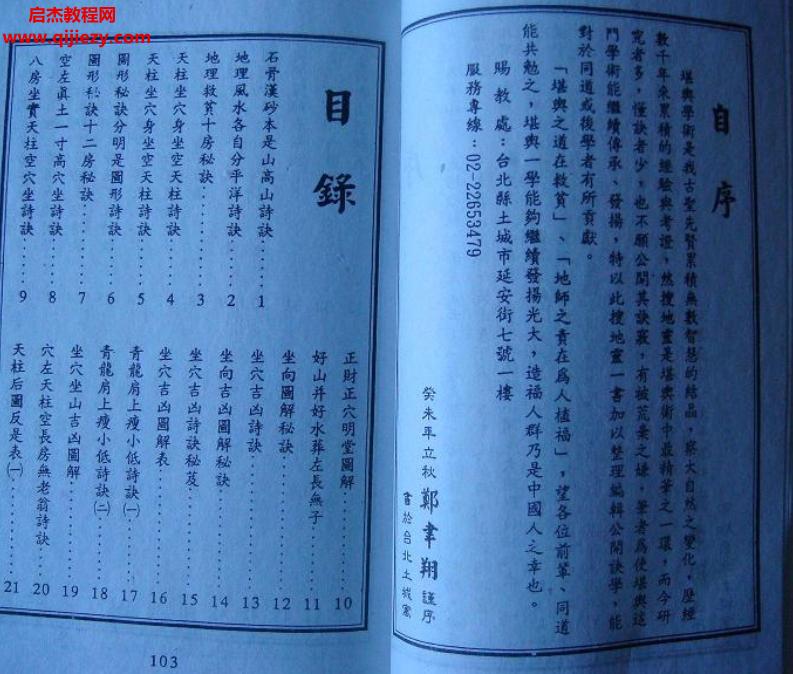 启杰教程网
www.qijiezy.com
自序
堪輿學術是我古聖先賢累積無數智慧的結晶，察大自然之變化，歷經
數千年來累積的經驗與考證，然搜地靈是堪輿術中最精華之一環，而今研
究者多，懂訣者少，也不願公開其訣竅，有被荒棄之嫌，筆者為使堪輿這
門學術能繼續傳承、發揚，特以此搜地靈一書加以整理編輯公開訣學，能
對於同道或後學者有所貢獻。
「堪輿之道在救貧」、「地師之責在為人植福」，望各位前輩、同道
能共勉之，堪輿一學能夠繼續發揚光大，造福人群乃是中國人之幸也。
賜教處：台北縣土城市延安街七號一樓
服務專線：02-22653479
癸未年立秋 鄭聿翔 謹序
書於台北土城寓
目錄
石骨漢砂本是山高山詩訣‥‥1
地理風水各自分平洋詩訣‥‥2
地理救貧十房秘訣‥‥‥3
天柱坐穴身坐空天柱詩訣‥‥4
天柱坐穴身坐空天柱詩訣‥‥5
圖形秘訣分明是圖形詩訣‥‥6
圖形秘訣十二房秘訣‥‥‥7
空左真土一寸高穴坐詩訣‥‥8
八房坐實天柱空穴坐詩訣‥‥9
正財正穴明堂圖解‥‥‥10
好山并好水葬左長無子‥‥‥11
坐向圖解秘訣‥‥‥12
坐穴吉凶詩訣‥‥‥13
坐向吉凶圖解秘訣‥‥‥14
坐穴吉凶詩訣秘芨‥‥‥15
坐穴吉凶圖解表‥‥‥16
青龍肩上瘦小低詩訣㈠‥‥‥17
青龍肩上瘦小低詩訣㈡‥‥‥18
坐穴坐山吉凶圖解‥‥‥19
穴左天柱空長房無老翁詩訣‥‥20
天柱后圖反是表㈠‥‥‥21
103